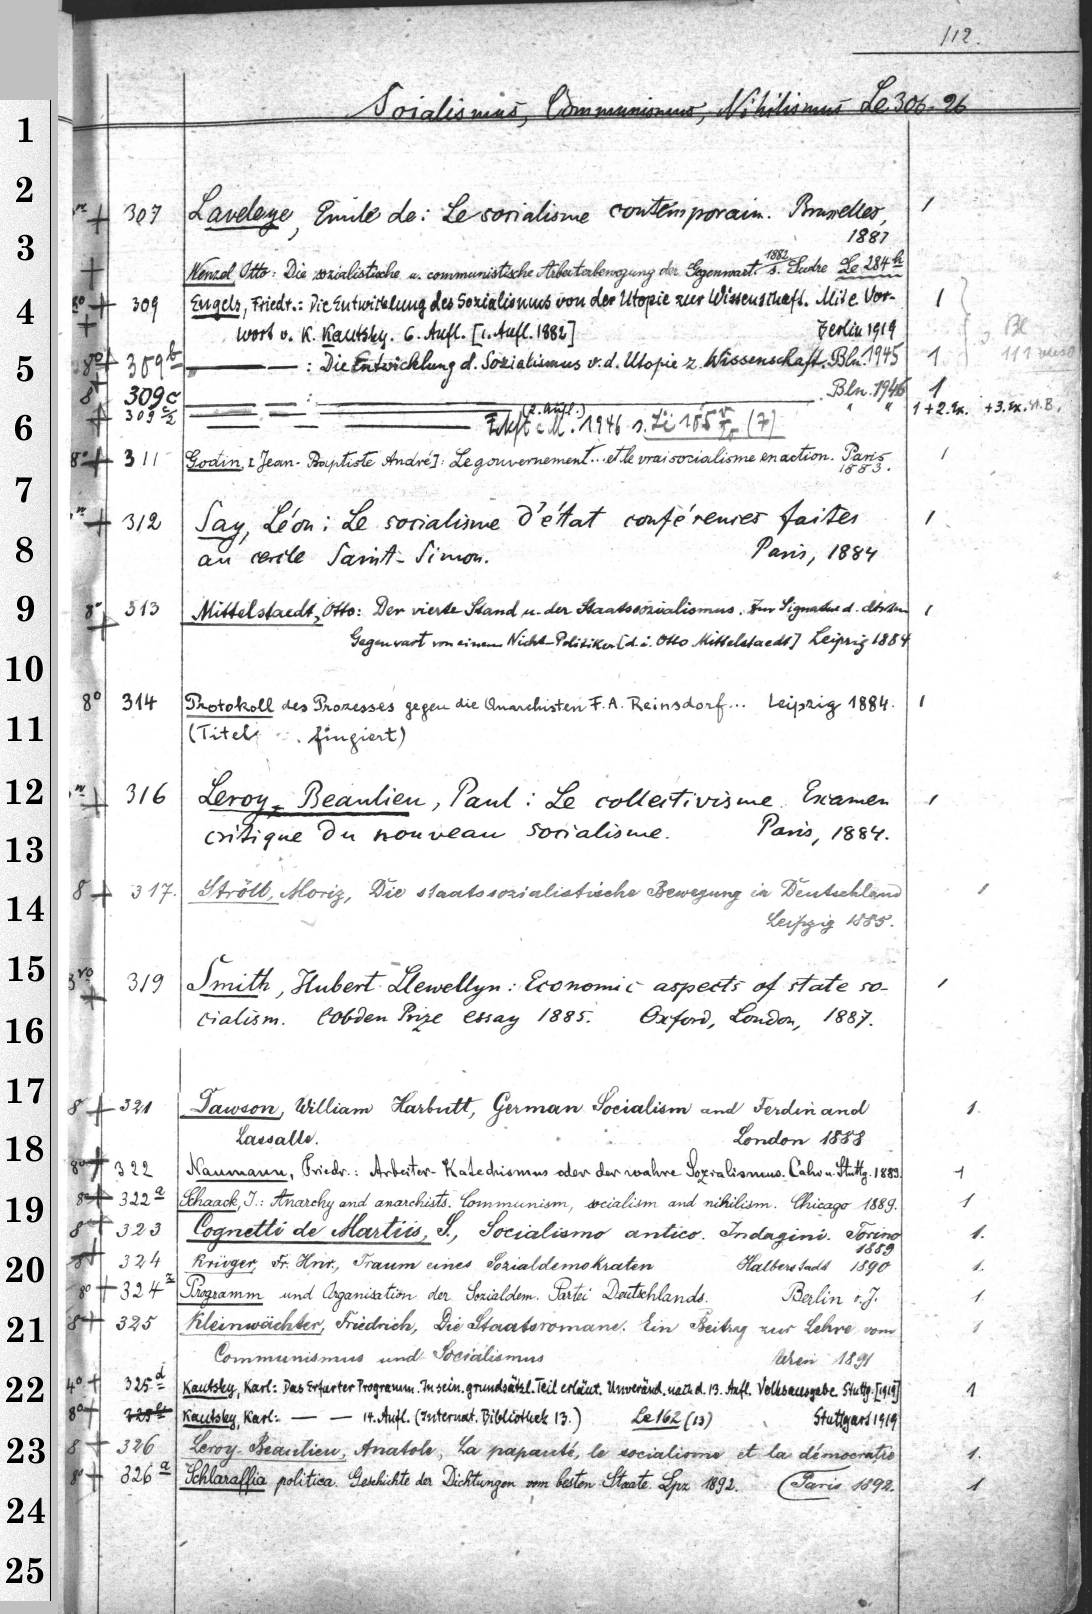 112.
Sozialismus, Communismus, Nihilismus Le 306-26
1
2
+ 307 Laveleye, Emile de: Le socialisme contemporain. Bruxelles, 1
1881
3
+ Wenzel, Otto: Die sozialistische u. communistische Arbeiterbewegung der Gegenwart. 1882 s. Sudre Le 284 h
4
8o + 309 Engels, Friedr.: Die Entwicklung des Sozialismus von der Utopie zur Wissenschaft. Mit e. Vor- 1
+ wort v. K. Kautsky. 6. Aufl. [1. Aufl. 1882] Berlin 1919
Bl
111 verso
5
8o + 309 b — — : Die Entwicklung d. Sozialismus v. d. Utopie z. Wissenschaft. Bln. 1945 1
8o 309 c — — : — Bln. 1946 1
+ 309 c/2 — — (2. Aufl.) " " 1+2. Ex. +3. Ex. N.B.
6
1946 s. Li 155 (7)
8o + 311 Godin, [Jean-Baptiste André]: Le gouvernement... et le vrai socialisme en action. Paris 1
1883.
7
+ 312 Say, Léon: Le socialisme d'état conférences faites 1
8
au cercle Saint-Simon. Paris, 1884
9
8o + 313 Mittelstaedt, Otto: Der vierte Stand u. der Staatssozialismus. Zur Signatur d. 1
Gegenwart von einem Nicht-Politiker [d. i. Otto Mittelstaedt] Leipzig 1884
10
8o 314 Protokoll des Prozesses gegen die Anarchisten F. A. Reinsdorf... Leipzig 1884. 1
11
(Titel fingiert)
12
+ 316 Leroy-Beaulieu, Paul: Le collectivisme. Examen 1
13
critique du nouveau socialisme. Paris, 1884.
14
8 + 317. Ströll, Moriz, Die staatssozialistische Bewegung in Deutschland 1
Leipzig 1885.
15
8vo + 319 Smith, Hubert Llewellyn: Economic aspects of state so- 1
16
cialism. Cobden Prize essay 1885. Oxford, London, 1887.
17
8 + 321 Dawson, William Harbutt, German Socialism and Ferdinand 1.
18
Lassalle. London 1888
8o + 322 Naumann, Friedr.: Arbeiter-Katechismus oder der wahre Sozialismus. Calw u. Stuttg. 1889. 1
19
8o + 322 a Schaack, J.: Anarchy and anarchists. Communism, socialism and nihilism. Chicago 1889. 1
8o + 323 Cognetti de Martiis, S., Socialismo antico. Indagini. Torino 1.
1889
20
8o + 324 Krüger, Fr. Hnr., Traum eines Sozialdemokraten Halberstadt 1890 1.
8o + 324 z Programm und Organisation der Sozialdem. Partei Deutschlands. Berlin o. J. 1.
21
8o + 325 Kleinwächter, Friedrich, Die Staatsromane. Ein Beitrag zur Lehre vom 1
Communismus und Socialismus Wien 1891
22
4o + 325 d Kautsky, Karl: Das Erfurter Programm. In sein. grundsätzl. Teil erläut. Unveränd. nach d. 13. Aufl. Volksausgabe. Stuttg. [1919] 1
8o + 325 Kautsky, Karl: — — 14. Aufl. (Internat. Bibliothek 13.) Le 162 (13) Stuttgart 1919
23
8 + 326 Leroy-Beaulieu, Anatole, La papauté, le socialisme et la démocratie 1.
8o + 326 a Schlaraffia politica. Geschichte der Dichtungen vom besten Staate. Lpz 1892. (Paris 1892. 1
24
25